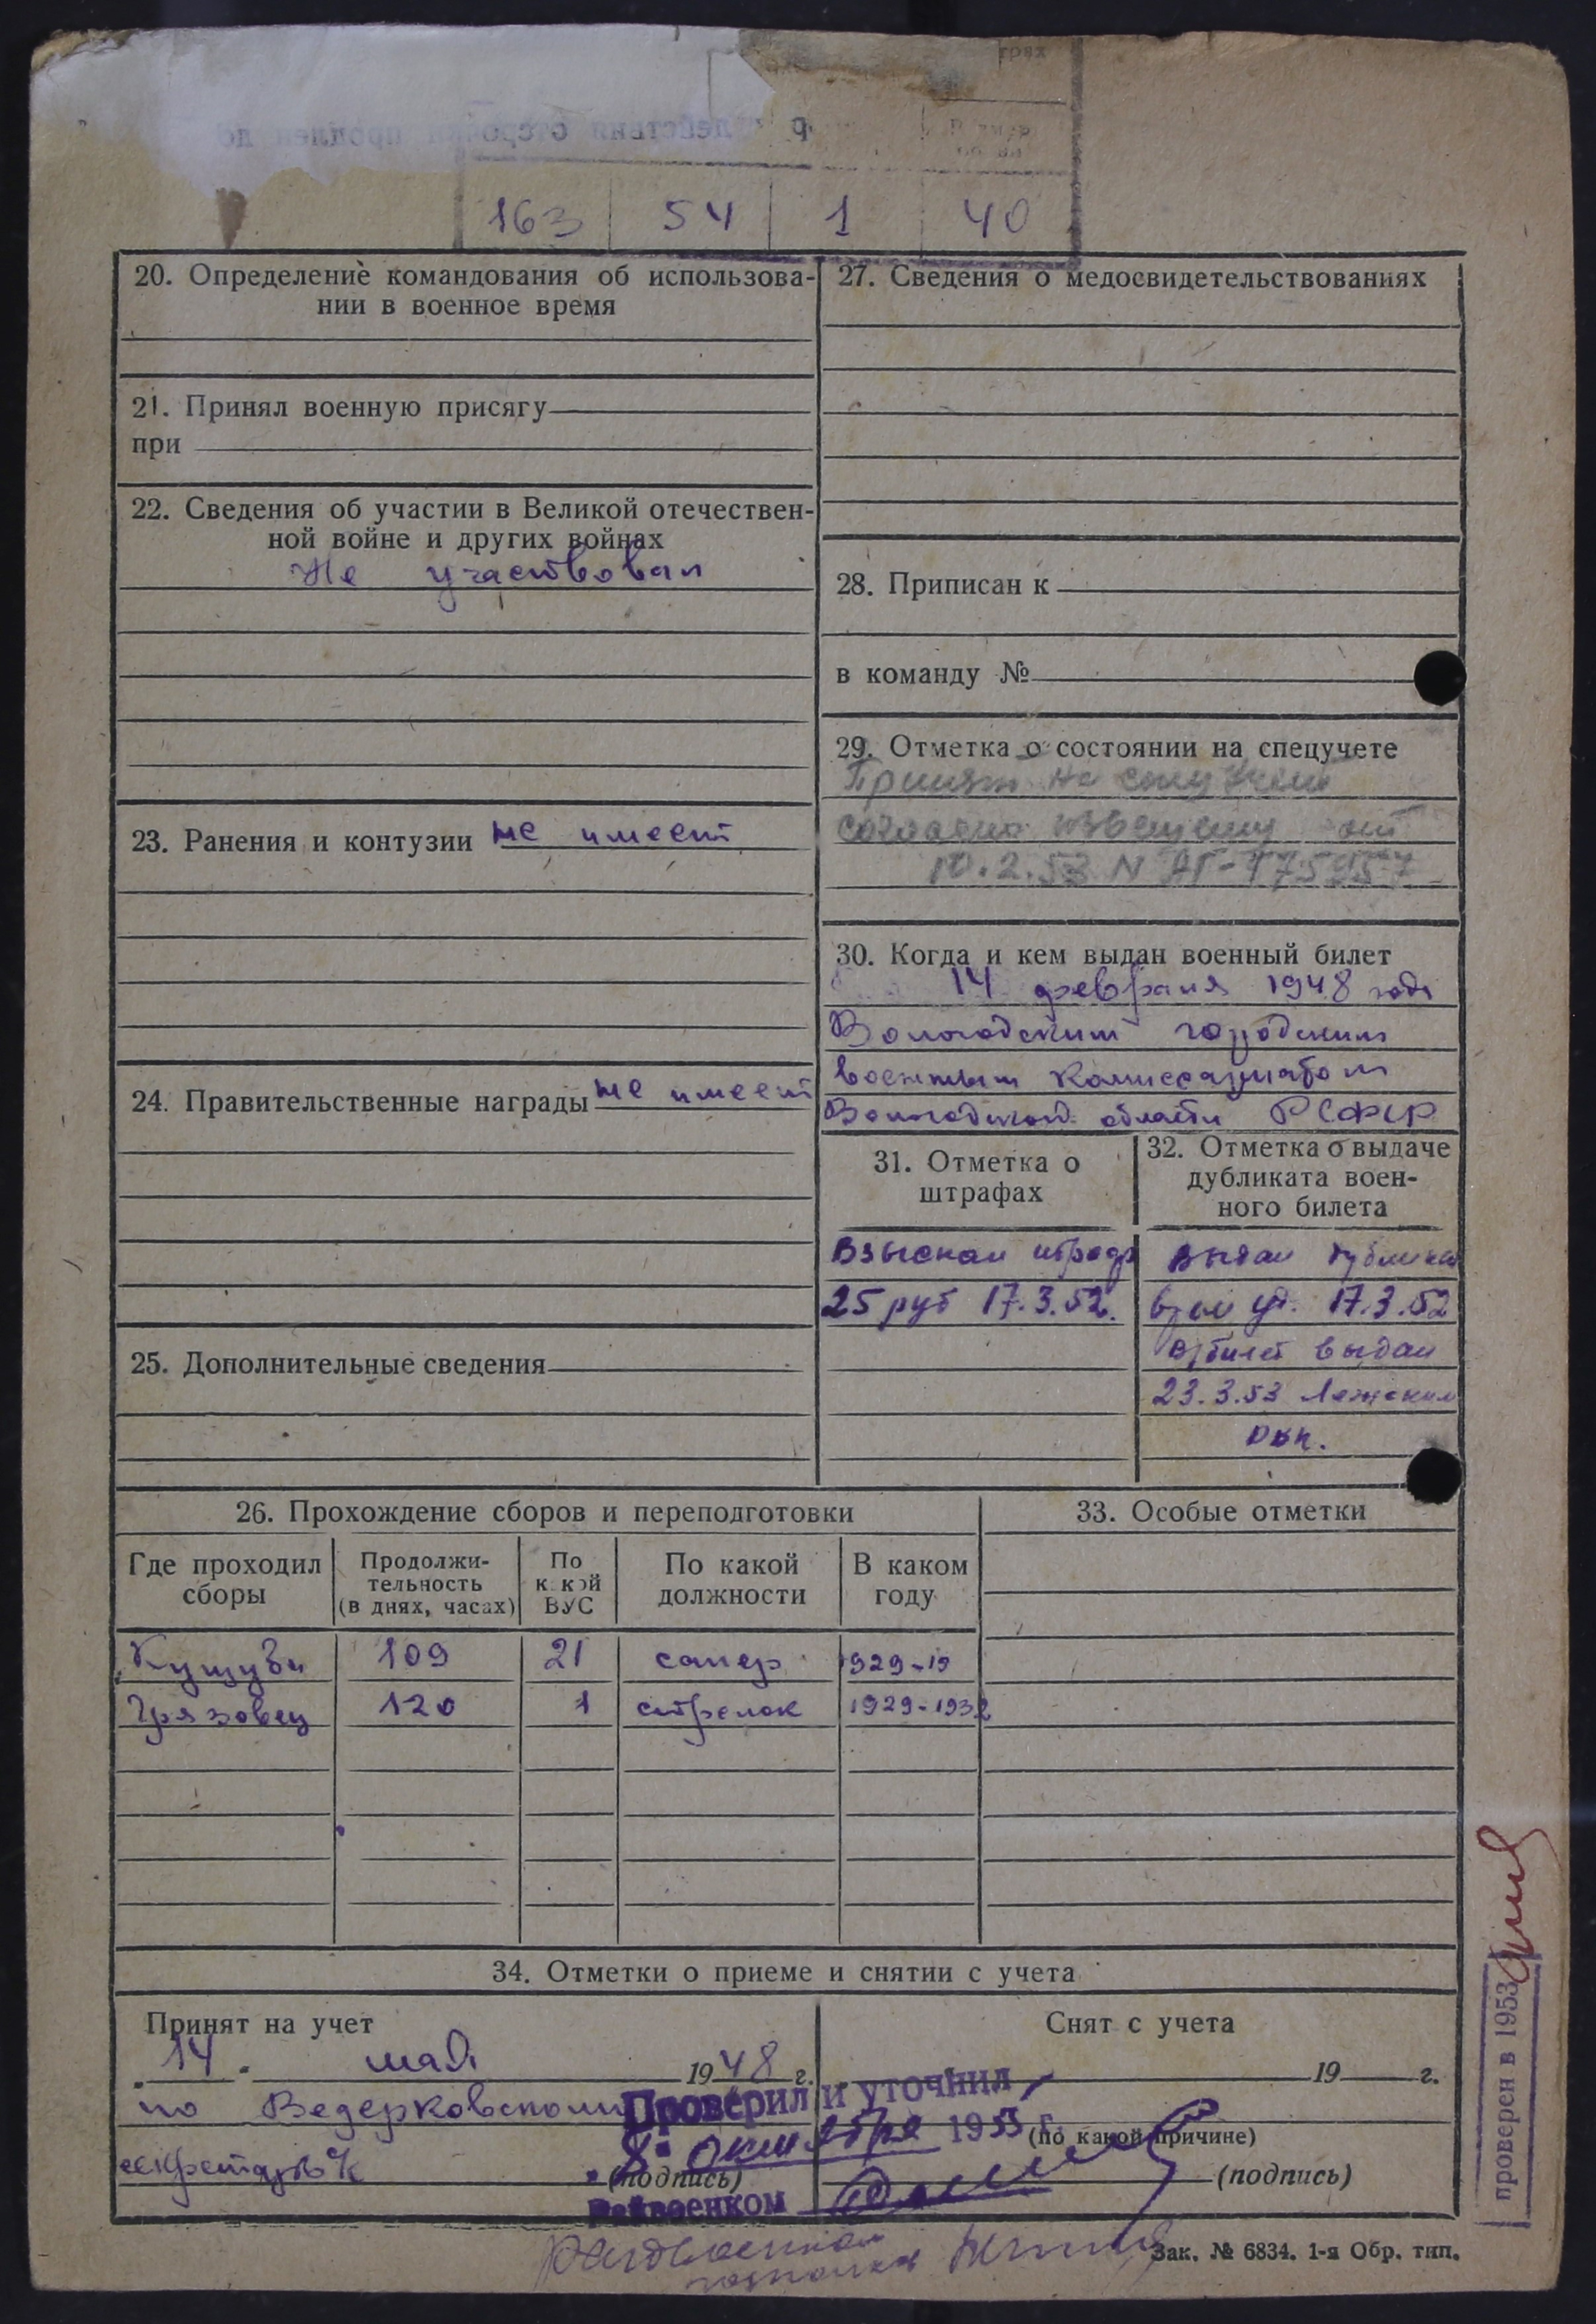 163 54 1 40
20. Определение командования об использова-
нии в военное время
21. Принял военную присягу
при
22. Сведения об участии в Великой отечествен-
ной войне и других войнах
Не участвовал
23. Ранения и контузии не имеет
24. Правительственные награды не имеет
25. Дополнительные сведения
27. Сведения о медосвидетельствованиях
28. Приписан к
в команду №
29. Отметка о состоянии на спецучете
Принят на спецучет
согласно извещению от
10.2.53 N АГ-175957
30. Когда и кем выдан военный билет
14 февраля 1948 года
Вологодским городским
военным комиссариатом
Вологодской области РСФСР
31. Отметка о
штрафах
Взыскан штраф
25 руб 17.3.52.
32. Отметка о выдаче
дубликата воен-
ного билета
Выдан дубликат
17.3.52
в/билет выдан
23.3.53 Лежским
РВК.
26. Прохождение сборов и переподготовки
Где проходил
сборы
Продолжи-
тельность
(в днях, часах)
По
какой
ВУС
По какой
должности
В каком
году
109 21 сапер 1929-19
Грязовец 120 1 стрелок 1929-1932
33. Особые отметки
34. Отметки о приеме и снятии с учета
Принят на учет
14 мая 1948 г.
по Ведерковскому
(подпись)
Снят с учета
19 г.
(по какой причине)
(подпись)
Проверил и уточнил
8 октября 1955 г.
Райвоенком
Райвоенком
проверен в 1953
Зак. № 6834. 1-я Обр. тип.